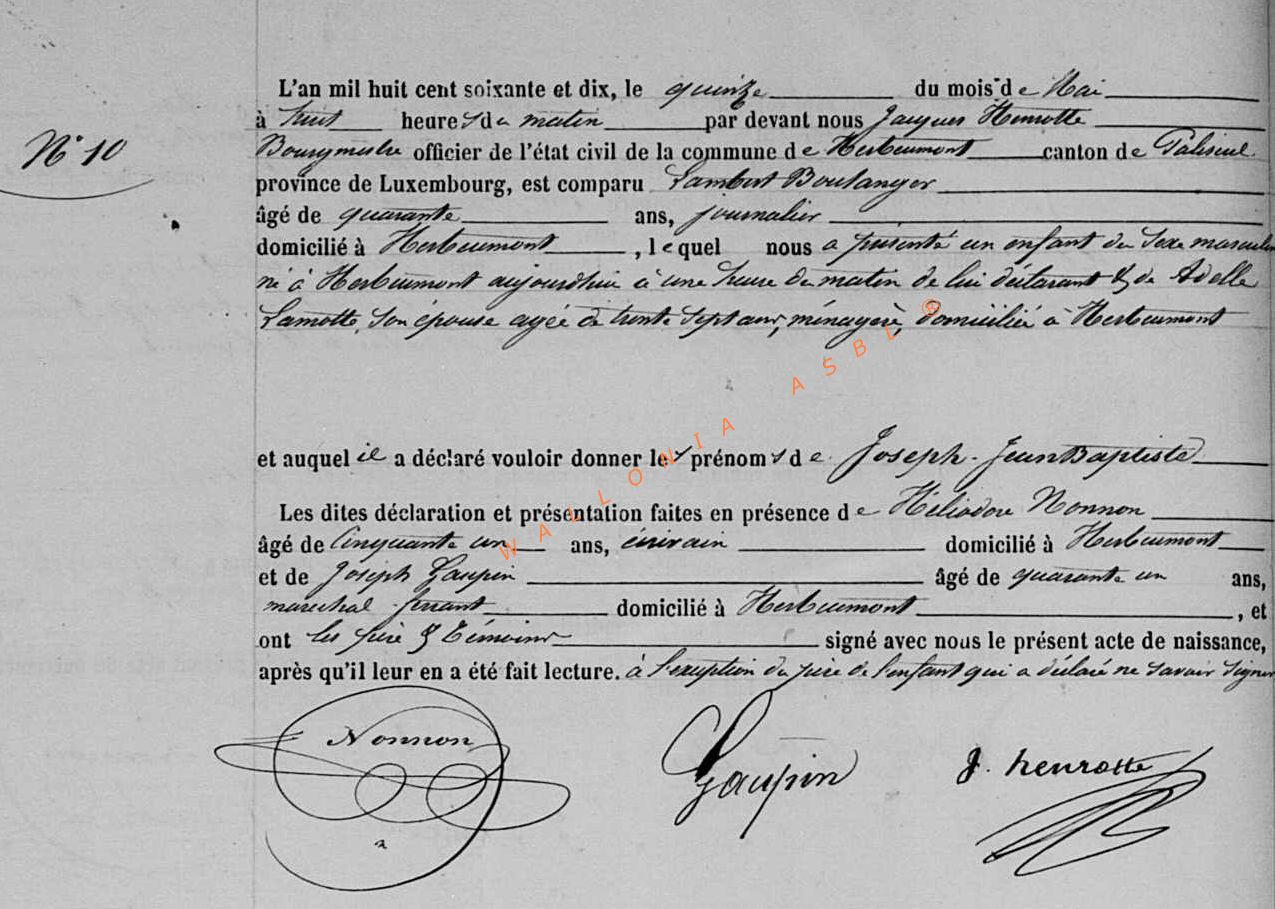 L'an mil huit cent soixante et dix, le quinze du mois de Mai
à huit heures du matin par devant nous Jacques Henrotte
N° 10
Bourgmestre officier de l'état civil de la commune de Herbeumont canton de Paliseul
province de Luxembourg, est comparu Lambert Boulanger
âgé de quarante ans, journalier
domicilié à Herbeumont, lequel nous a présenté un enfant du sexe masculin
né à Herbeumont aujourdhui à une heure du matin de lui déclarant & de Adelle
Lamotte, son épouse agée de trente sept ans, ménagère, domiciliée à Herbeumont
et auquel il a déclaré vouloir donner les prénoms de Joseph-Jean Baptiste
Les dites déclaration et présentation faites en présence de Héliodore Nonnon
âgé de Cinquante un ans, écrivain domicilié à Herbeumont
et de Joseph Gaupin âgé de quarante un ans,
marechal ferrant domicilié à Herbeumont, et
ont les père & témoins signé avec nous le présent acte de naissance,
après qu'il leur en a été fait lecture. à l'exception du père de l'enfant qui a déclaré ne savoir signer
Nonnon Gaupin J. henrotte
WALLONIA ASBL ®